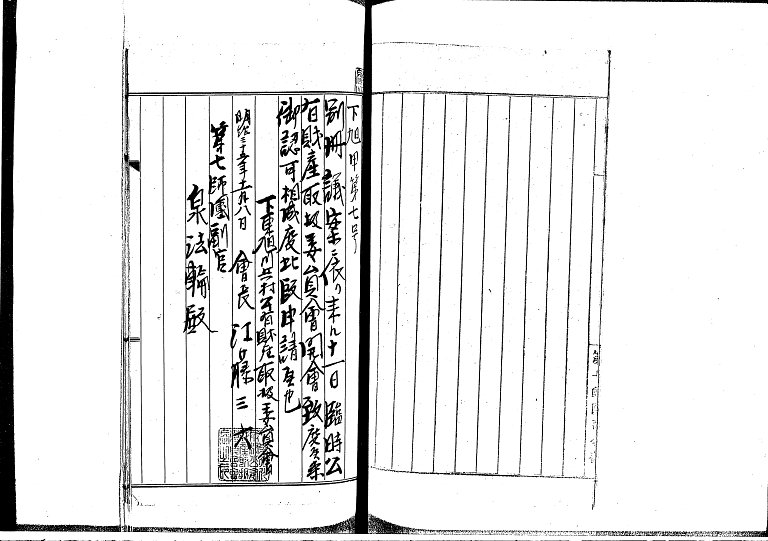 下旭甲第七号
別冊議案ニ依リ来ル十一日臨時公
有財産取扱委員會開會致度候条
御認可相成度此段申請候也
下東旭川兵村公有財産取扱委員會
明治三十五年十一月八日 會長 江藤三六
第七師團副官
泉法輪殿